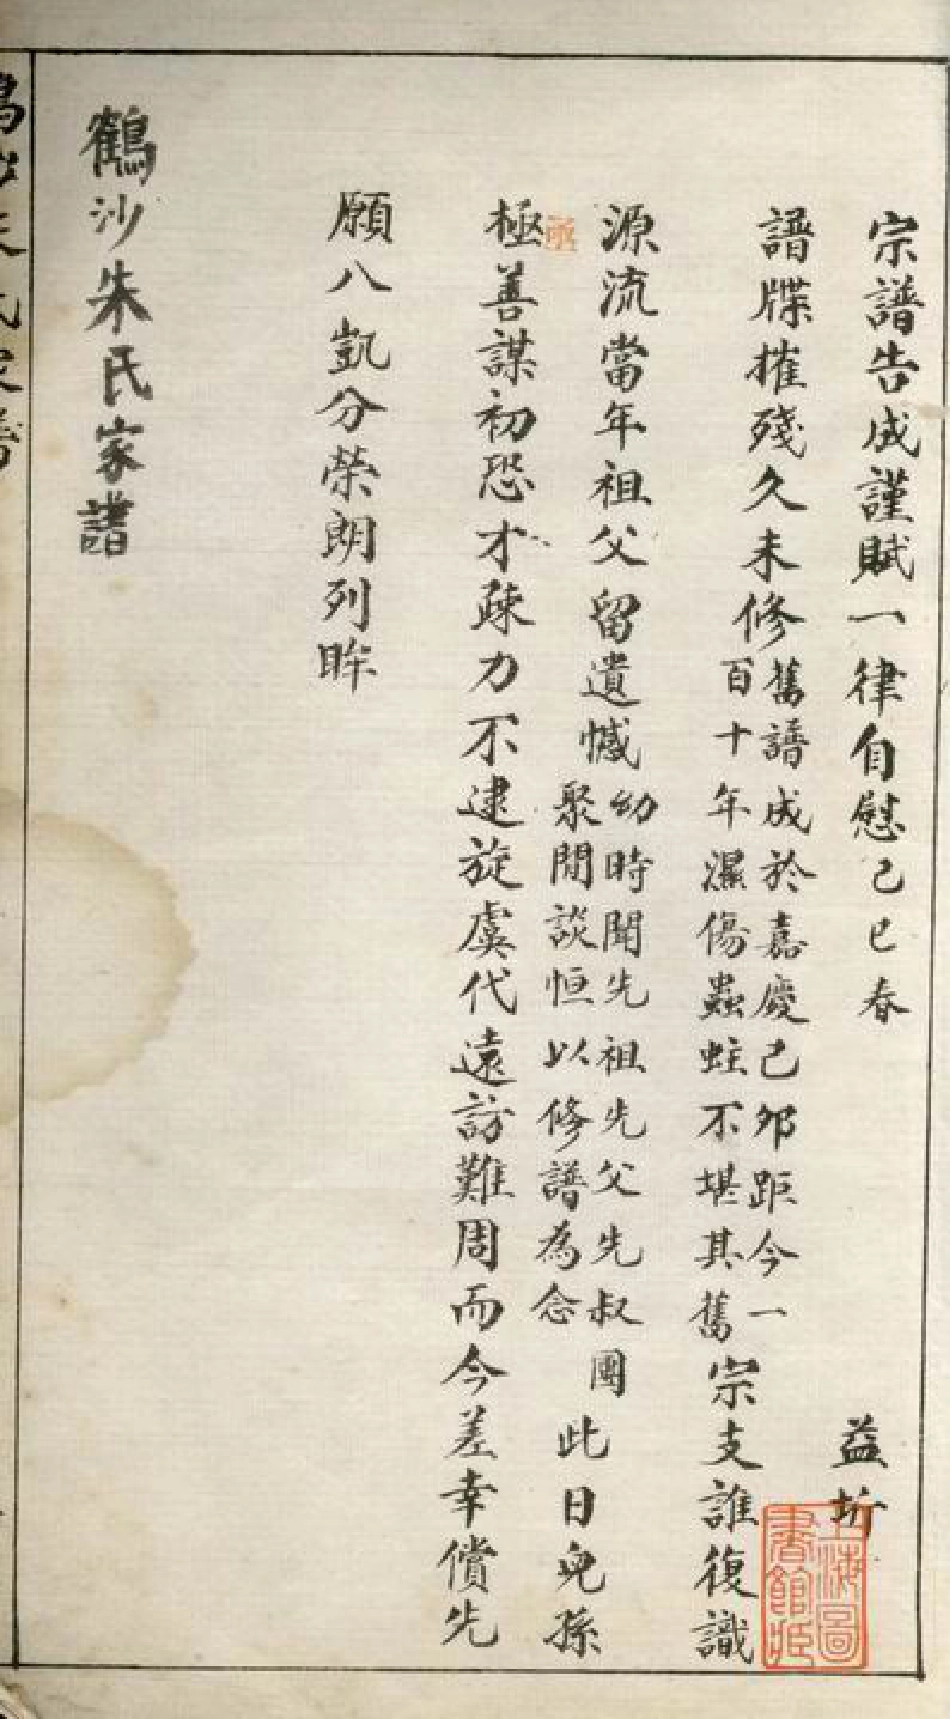 宗譜告成謹賦一律自慰己巳春 益圻
譜牒摧殘久未修
舊譜成於嘉慶己卯距今一
百十年濕傷蟲蛀不堪其舊
宗支誰復識
源流當年祖父留遺憾
幼時聞先祖先父先叔團
聚閒談恒以修譜為念
此日兒孫
極善謀初恐才疎力不逮旋虞代遠訪難周而今差幸償先
願八凱分榮朗列眸
鶴沙朱氏家譜
上海圖
書館藏